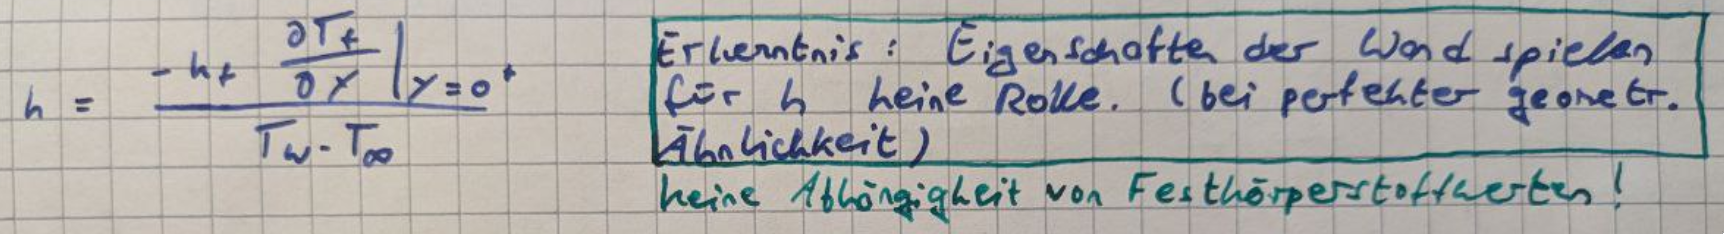 h = -k_f ∂T_f/∂y|y=0⁺ / T_w - T_∞
Erkenntnis: Eigenschaften der Wand spielen
für h keine Rolle. (bei perfekter geometr.
Ähnlichkeit)
keine Abhängigkeit von Festkörperstoffwerten!